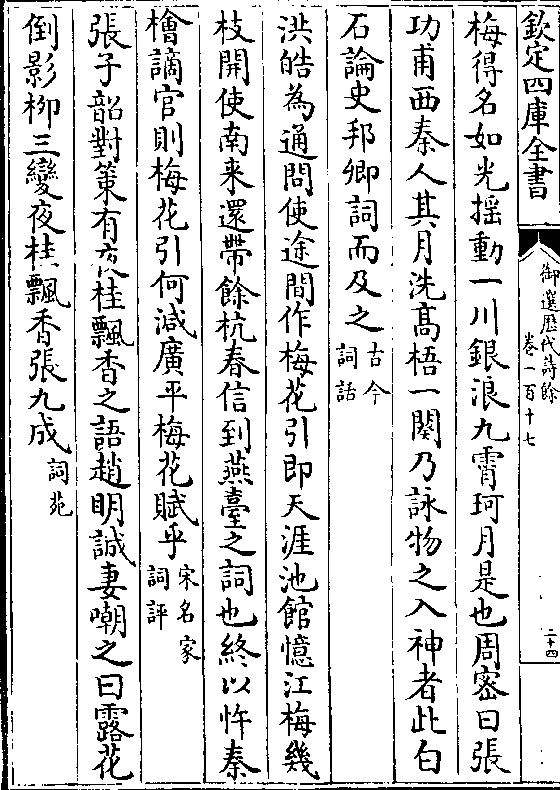 欽定四庫全書
御選歷代詩餘
卷一百十七
二十四
梅得名如光揺動一川銀浪九霄珂月是也周密曰張
功甫西秦人其月洗高梧一闋乃詠物之入神者此白
石論史邦卿詞而及之
古今
詞話
洪皓為通問使途間作梅花引即天涯池館憶江梅幾
枝開使南来還帶餘杭春信到燕臺之詞也終以忤秦
檜謫官則梅花引何減廣平梅花賦乎
宋名家
詞評
張子韶對策有夜桂飄香之語趙明誠妻嘲之曰露花
倒影栁三變夜桂飄香張九成
詞苑